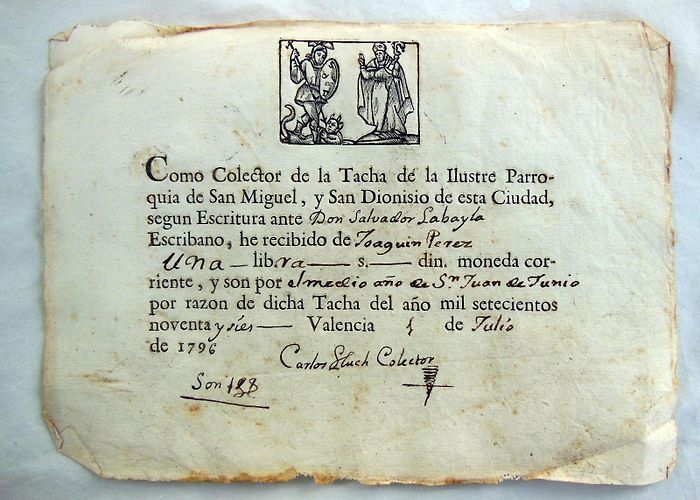 Como Colector de la Tacha de la Ilustre Parro-
quia de San Miguel, y San Dionisio de esta Ciudad,
segun Escritura ante Don Salvador Labayla
Escribano, he recibido de Joaquin Perez
Una libra s. din. moneda cor-
riente, y son por el medio año de Sn. Juan de Junio
por razon de dicha Tacha del año mil setecientos
noventa y sies Valencia de Julio
de 1796
Carlos Lluch Colector
Son